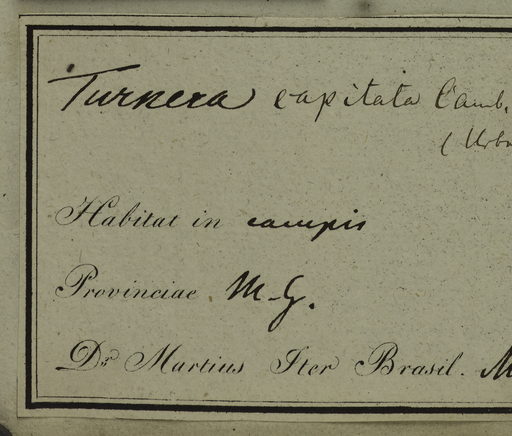 Turnera capitata Camb.
(Urb
Habitat in campis
Provinciae M.G.
Dr. Martius Iter Brasil. M